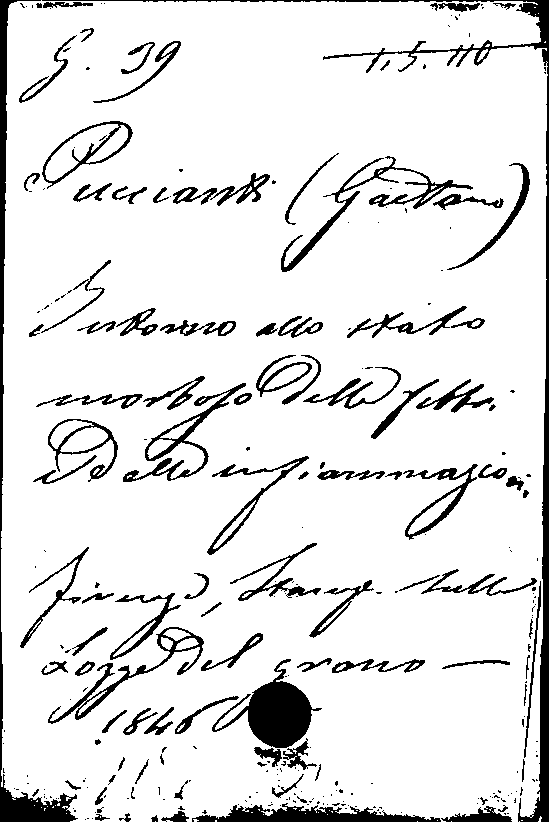 G. 39 1.5.110
Puccianti (Gaetano)
Intorno allo stato
morboso delle febbri
e delle infiammazioni.
Firenze, Stamp. sulle
Logge del grano —
1846